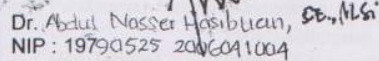 Dr. Abdul Nasser Hasibuan, SE., M.Si
NIP : 19790525 200604 1004